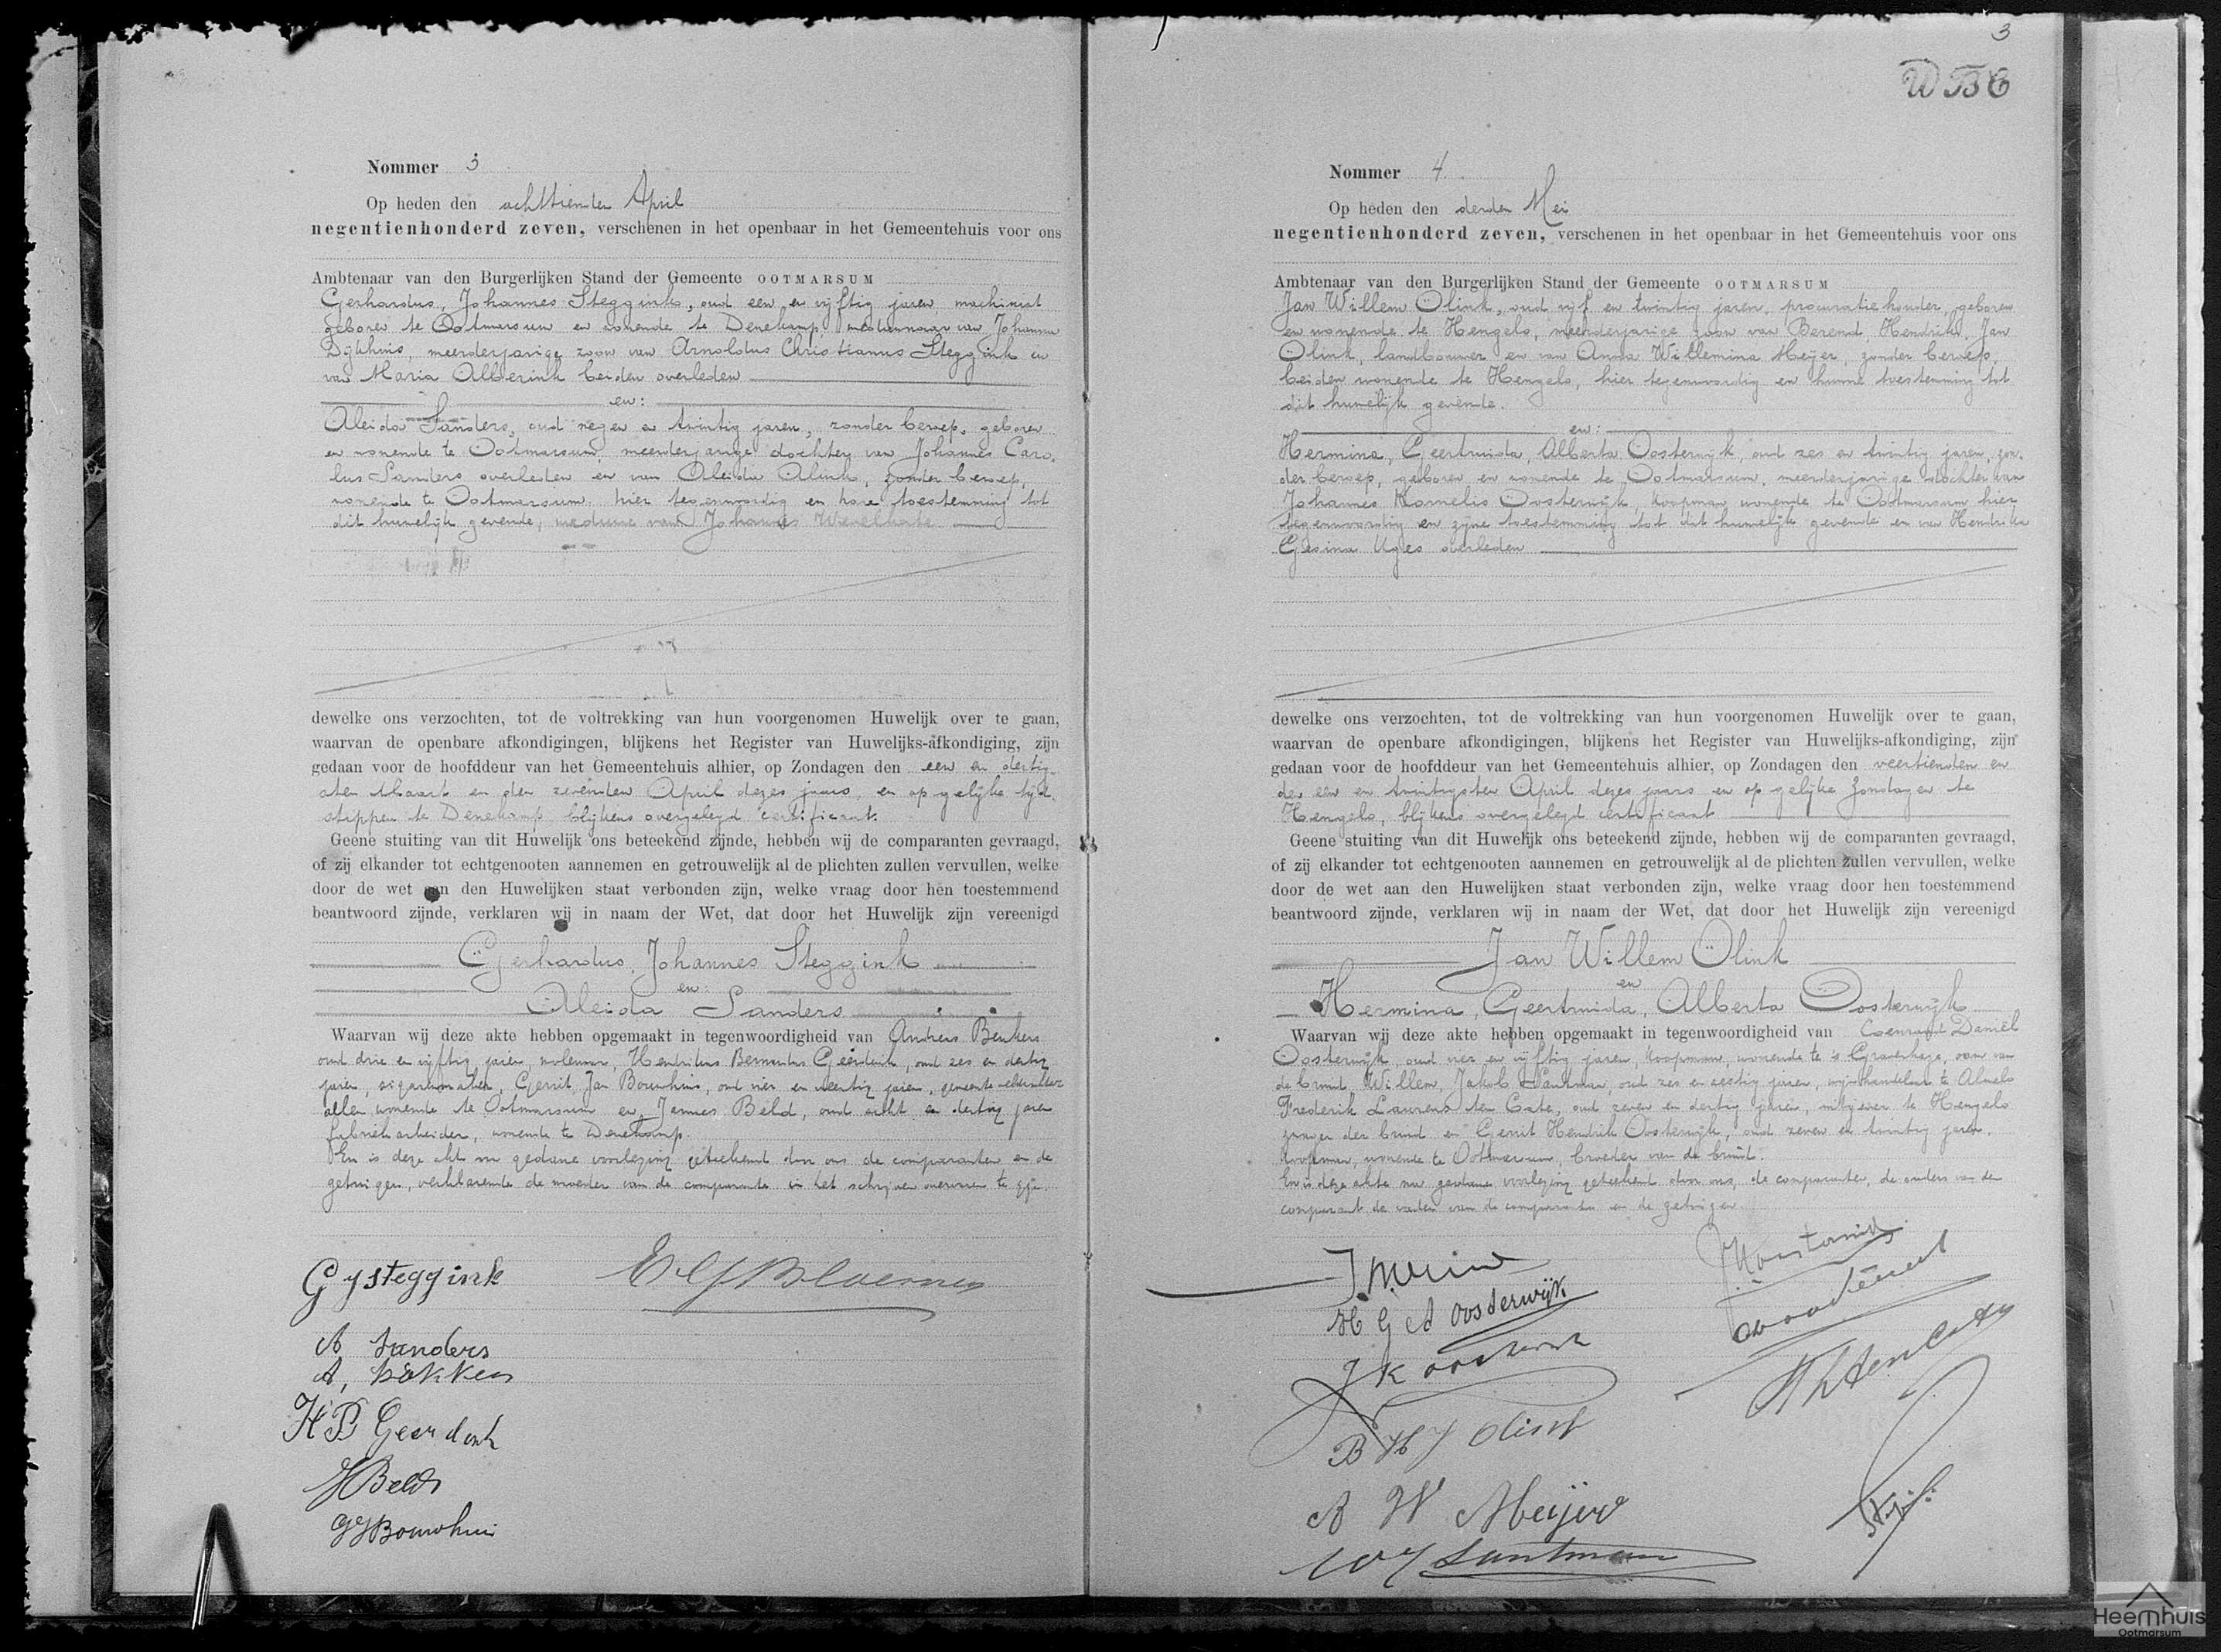 Nommer 3
Op heden den achttienden April
negentienhonderd zeven, verschenen in het openbaar in het Gemeentehuis voor ons
Ambtenaar van den Burgerlijken Stand der Gemeente OOTMARSUM
Gerhardus, Johannes Steggink, oud een en vijftig jaren, machinist
geboren te Ootmarsum en wonende te Denekamp, weduwnaar van Johanna
Dijkhuis, meerderjarige zoon van Arnoldus Christianus Steggink en
van Maria Alberink beiden overleden
en:
Aleida Sanders, oud negen en twintig jaren, zonder beroep, geboren
en wonende te Ootmarsum, meerderjarige dochter van Johannes Caro-
lus Sanders overleden en van Aleida Olink, zonder beroep,
wonende te Ootmarsum, hier tegenwoordig en hare toestemming tot
dit huwelijk gevende, weduwe van Johannes
dewelke ons verzochten, tot de voltrekking van hun voorgenomen Huwelijk over te gaan,
waarvan de openbare afkondigingen, blijkens het Register van Huwelijks-afkondiging, zijn
gedaan voor de hoofddeur van het Gemeentehuis alhier, op Zondagen den een en dertig-
sten Maart en den zevenden April dezes jaars, en op gelijke tijd-
stippen te Denekamp, blijkens overgelegd certificaat.
Geene stuiting van dit Huwelijk ons beteekend zijnde, hebben wij de comparanten gevraagd,
of zij elkander tot echtgenooten aannemen en getrouwelijk al de plichten zullen vervullen, welke
door de wet aan den Huwelijken staat verbonden zijn, welke vraag door hen toestemmend
beantwoord zijnde, verklaren wij in naam der Wet, dat door het Huwelijk zijn vereenigd
Gerhardus, Johannes Steggink
en:
Aleida Sanders
Waarvan wij deze akte hebben opgemaakt in tegenwoordigheid van Andreas
oud drie en vijftig jaren, molenaar, Hendrikus Bernardus Geerdink, oud zes en dertig
jaren, sigarenmaker, Gerrit Jan Bouwhuis, oud vier en veertig jaren, gemeente veldwachter
allen wonende te Ootmarsum en Jannes Beld, oud acht en dertig jaren
fabriekarbeider, wonende te Denekamp.
En is deze akte na gedane voorlezing geteekend door ons de comparanten en de
getuigen, verklarende de moeder van de comparante in het schrijven onervaren te zijn.
G J Steggink
A Sanders
A, Bökkers
H B Geerdink
J Beld
G J Bouwhuis
3
WBC
Nommer 4
Op heden den derden Mei
negentienhonderd zeven, verschenen in het openbaar in het Gemeentehuis voor ons
Ambtenaar van den Burgerlijken Stand der Gemeente OOTMARSUM
Jan Willem Olink, oud vijf en twintig jaren, procuratiehouder, geboren
en wonende te Hengelo, meerderjarige zoon van Berend, Hendrik, Jan
Olink, landbouwer en van Anna Willemina Meijer, zonder beroep,
beiden wonende te Hengelo, hier tegenwoordig en hunne toestemming tot
dit huwelijk gevende.
en:
Hermina, Geertruida, Alberta Oosterwijk, oud zes en twintig jaren, zon-
der beroep, geboren en wonende te Ootmarsum, meerderjarige dochter van
Johannes Kornelis Oosterwijk, koopman wonende te Ootmarsum, hier
tegenwoordig en zijne toestemming tot dit huwelijk gevende en van Hendrika
Gesina overleden
dewelke ons verzochten, tot de voltrekking van hun voorgenomen Huwelijk over te gaan,
waarvan de openbare afkondigingen, blijkens het Register van Huwelijks-afkondiging, zijn
gedaan voor de hoofddeur van het Gemeentehuis alhier, op Zondagen den veertienden en
den een en twintigsten April dezes jaars en op gelijke Zondagen te
Hengelo, blijkens overgelegd certificaat
Geene stuiting van dit Huwelijk ons beteekend zijnde, hebben wij de comparanten gevraagd,
of zij elkander tot echtgenooten aannemen en getrouwelijk al de plichten zullen vervullen, welke
door de wet aan den Huwelijken staat verbonden zijn, welke vraag door hen toestemmend
beantwoord zijnde, verklaren wij in naam der Wet, dat door het Huwelijk zijn vereenigd
Jan Willem Olink
en
Hermina, Geertruida, Alberta Oosterwijk
Waarvan wij deze akte hebben opgemaakt in tegenwoordigheid van Coenraad Daniël
Oosterwijk, oud vier en vijftig jaren, koopman, wonende te 's Gravenhage, oom van
de bruid, Willem Jakob Santman, oud zes en zestig jaren, wijnhandelaar te Almelo
Frederik Laurens ten Cate, oud zeven en dertig jaren, uitgever te Hengelo
zwager der bruid en Gerrit Hendrik Oosterwijk, oud zeven en twintig jaren,
koopman, wonende te Ootmarsum, broeder van de bruid.
En is deze akte na gedane voorlezing geteekend door ons, de comparanten, de ouders van den
comparant de vader van de comparante en de getuigen.
H G A Oosderwijk
J K Oosterwijk
B H J Olink
A W Meijer
W J Santman
Heemhuis
Ootmarsum